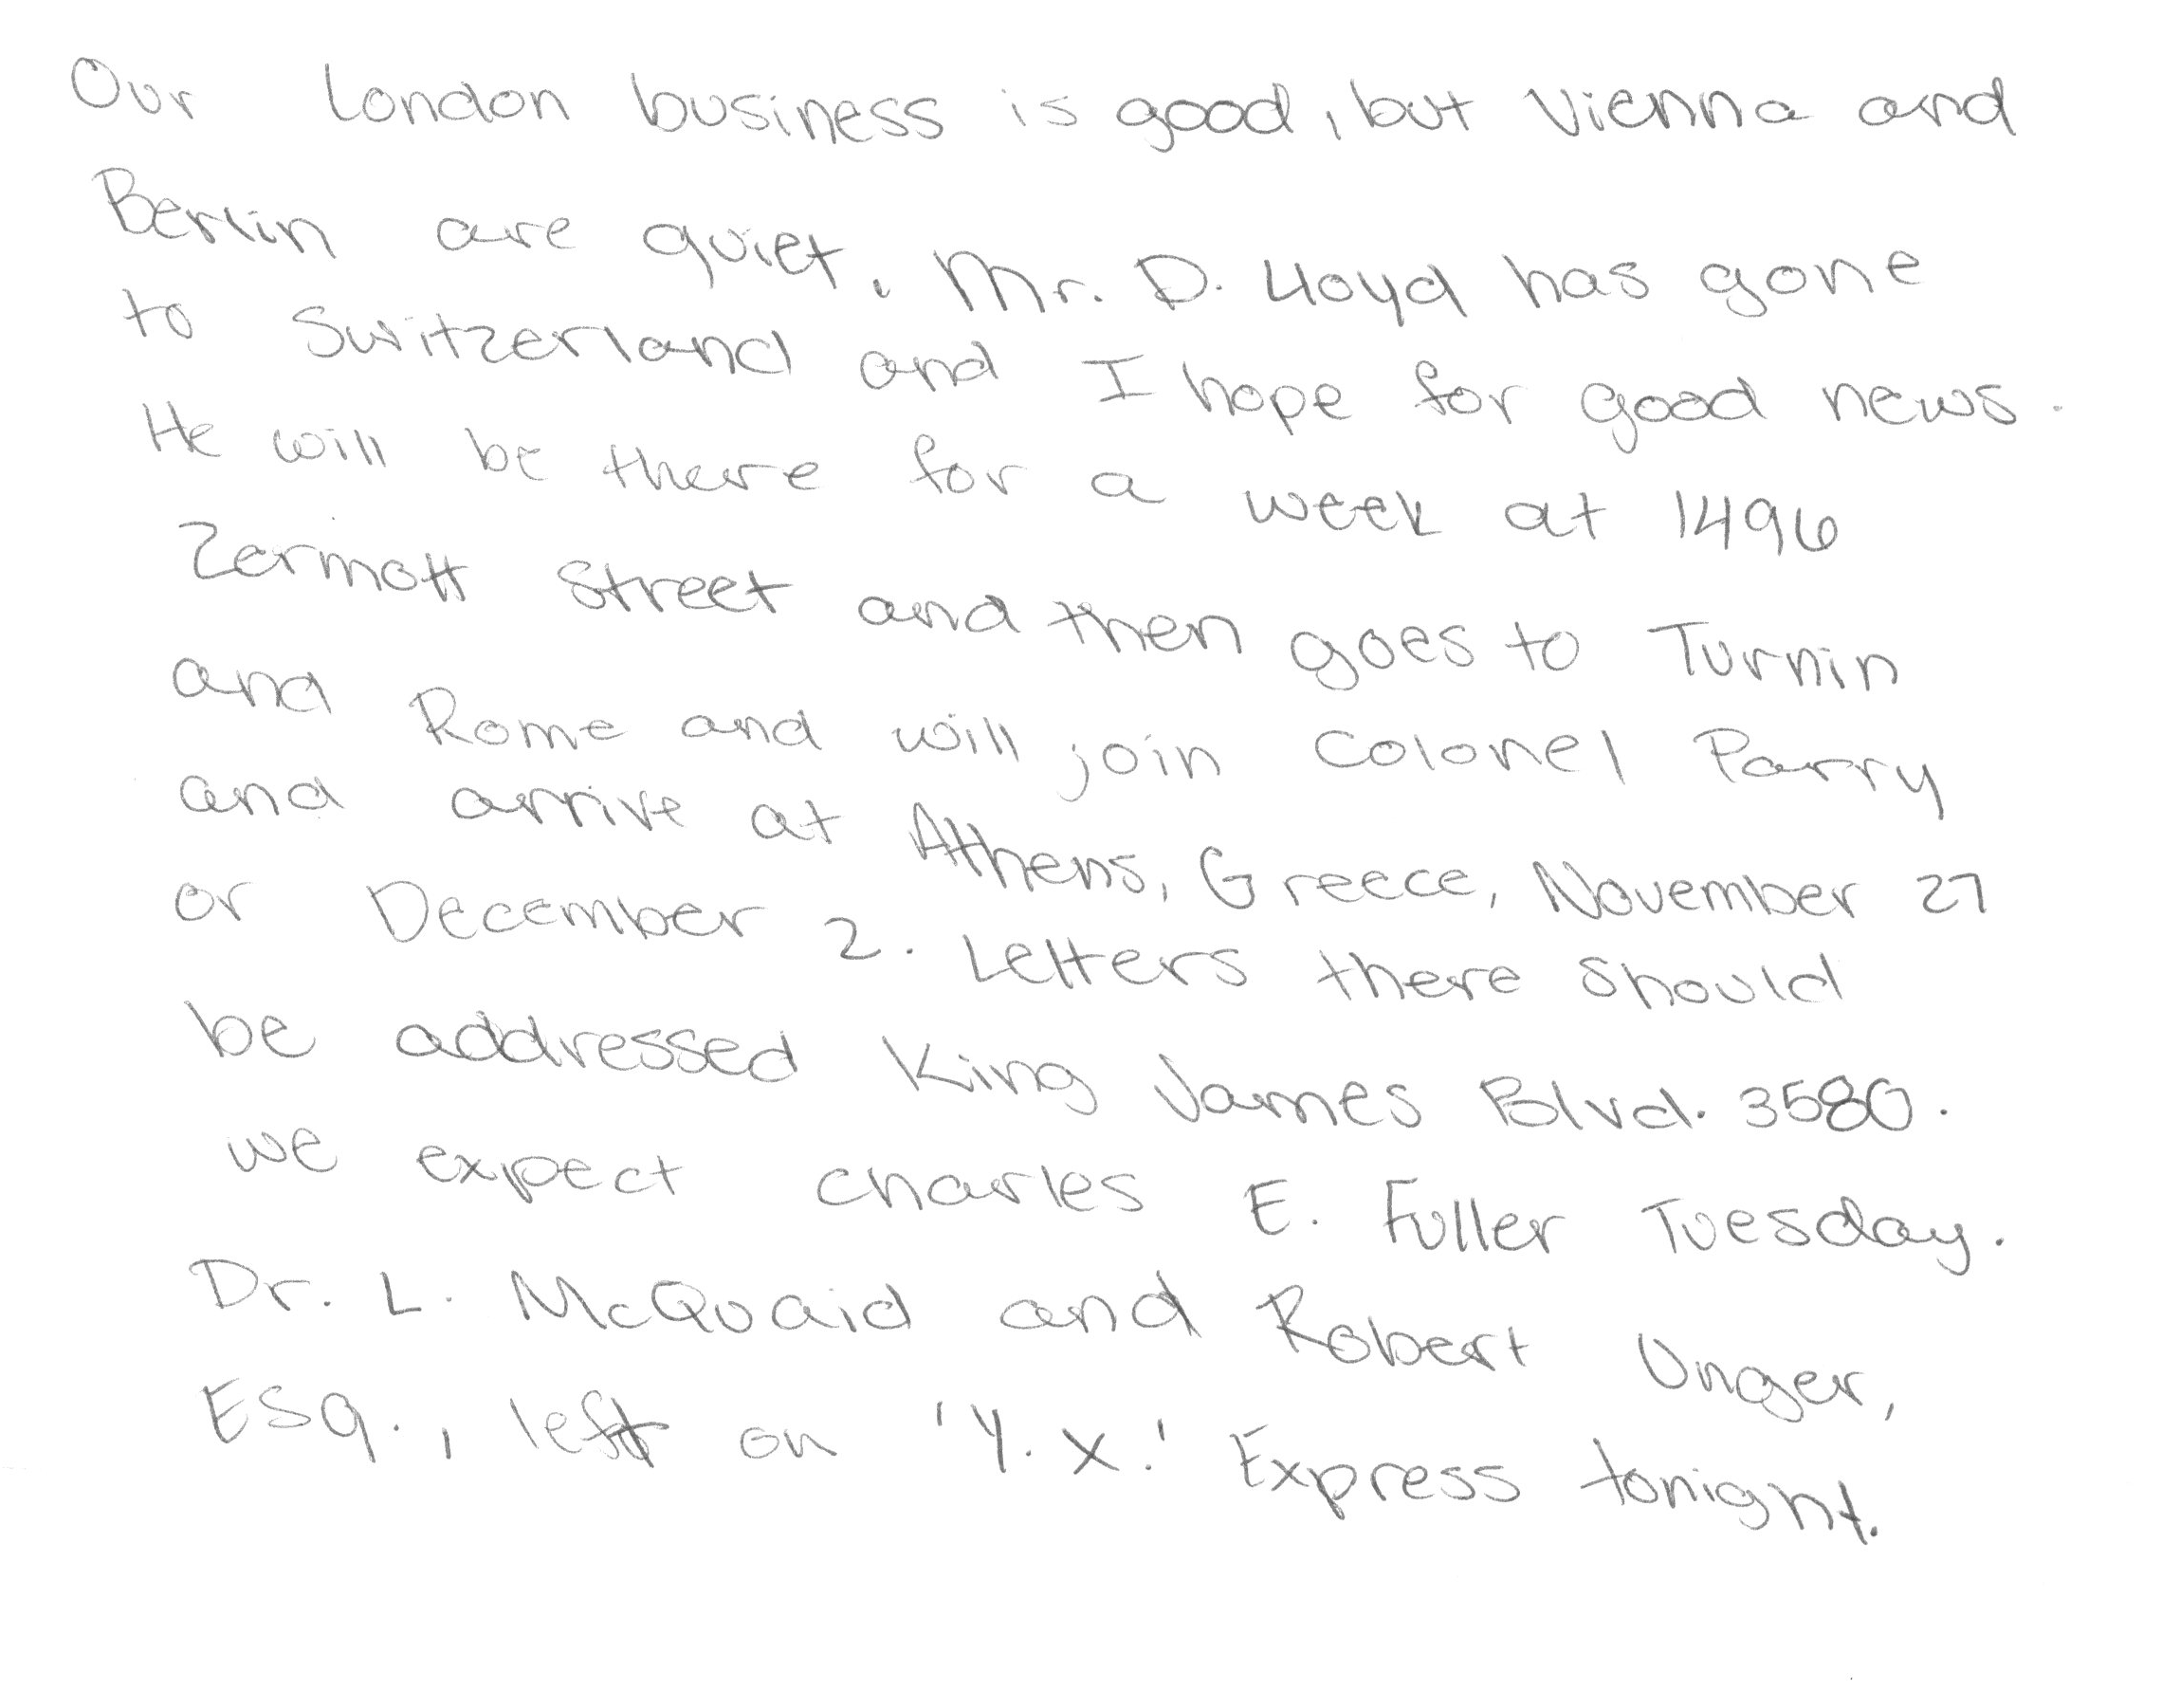 Our London business is good, but Vienna and
Berlin are quiet. Mr. D. Lloyd has gone
to Switzerland and I hope for good news.
He will be there for a week at 1496
Zermott Street and then goes to Turnin
and Rome and will join Colonel Parry
and arrive at Athens, Greece, November 27
or December 2. Letters there should
be addressed King James Blvd. 3580.
We expect Charles E. Fuller Tuesday.
Dr. L. McQuaid and Robert Unger,
Esq., left on 'Y.X.' Express tonight.